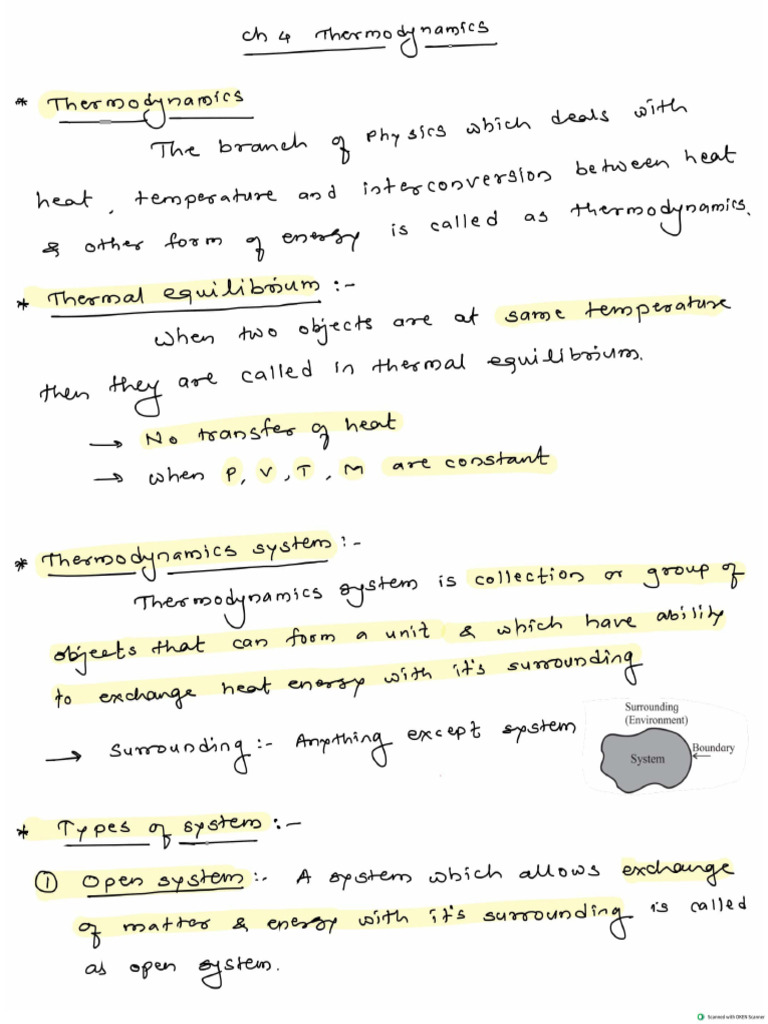 ch 4 Thermodynamics
* Thermodynamics
The branch of physics which deals with
heat, temperature and interconversion between heat
& other form of energy is called as thermodynamics.
* Thermal equilibrium :-
When two objects are at same temperature
then they are called in thermal equilibrium.
→ No transfer of heat
→ when P, V, T, M are constant
* Thermodynamics system :-
Thermodynamics system is collection or group of
objects that can form a unit & which have ability
to exchange heat energy with it's surrounding
→ Surrounding :- Anything except system
Surrounding
(Environment)
System
Boundary
* Types of system :-
① Open system :- A system which allows exchange
of matter & energy with it's surrounding is called
as open system.
Scanned with OKEN Scanner